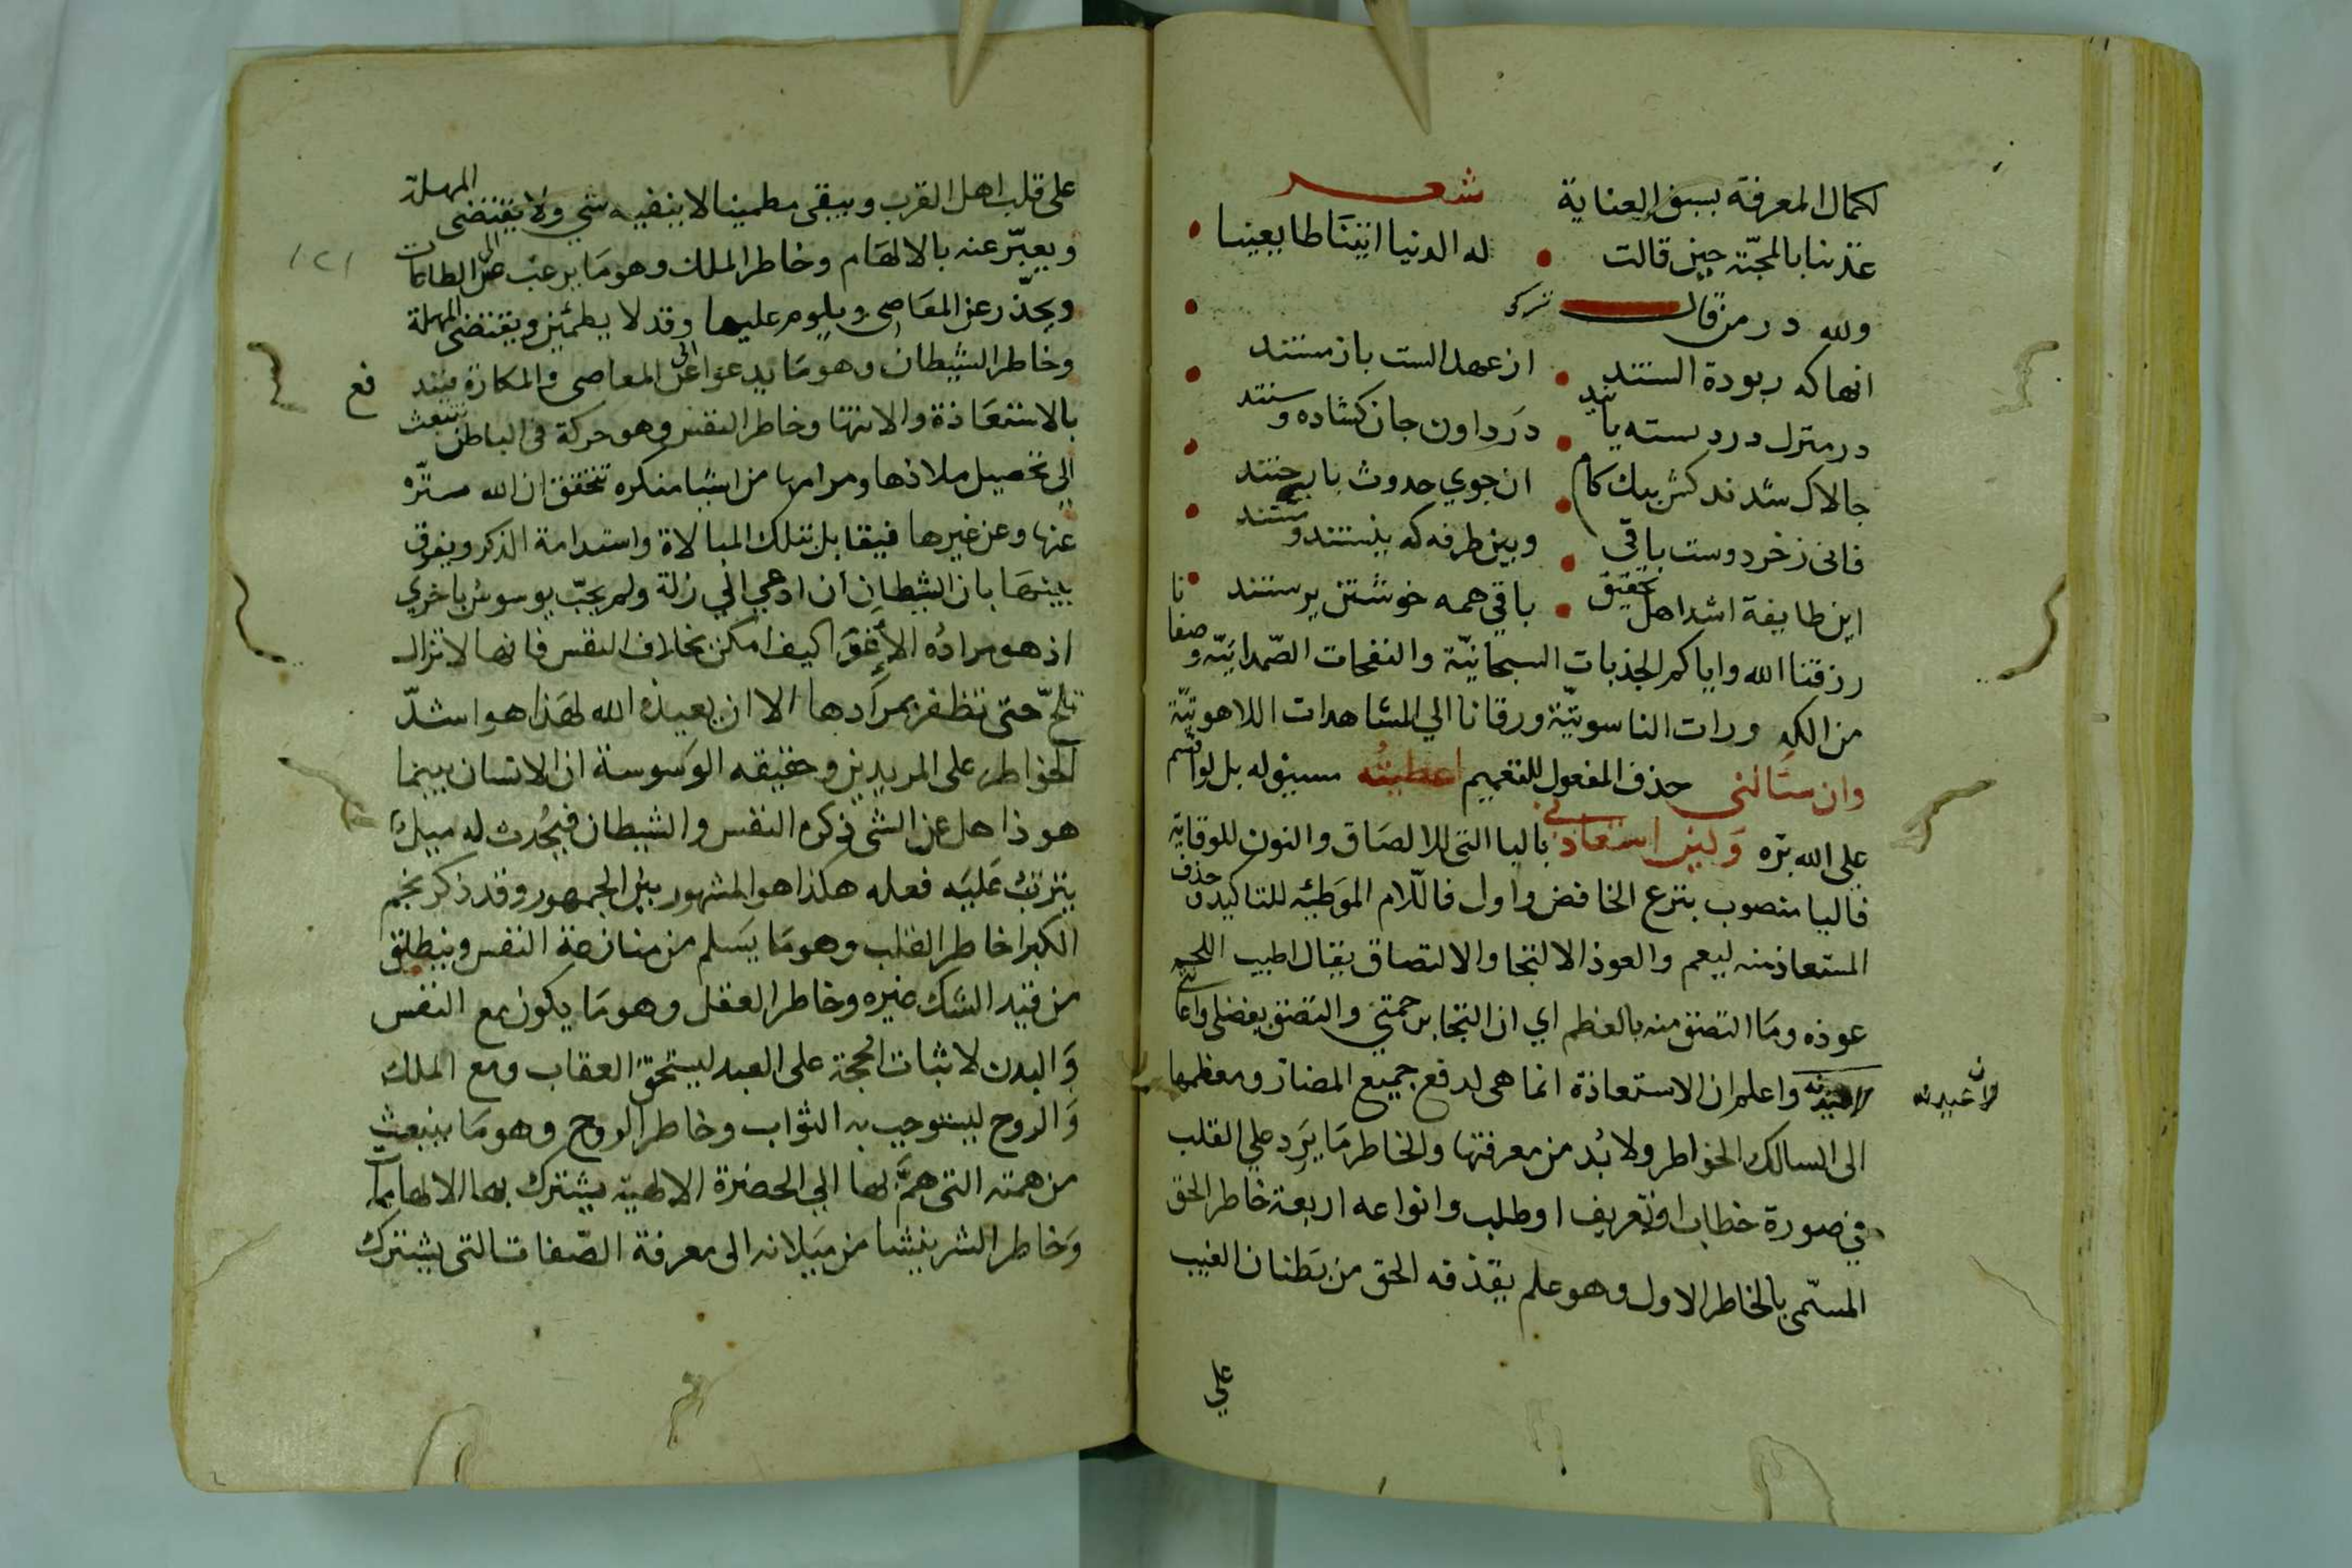 لكمال المعرفة بسبق العناية شعر
عذرنا بالمحبّة حين قالت • له الدنيا اتيناطا يعينا •
ولله در من قال تركى •
انهاكه ربودة الستند • از عهد الست باز مستند •
در منزل درد بسته پا • درداون جان كشاده وستند •
جالاك شدند كش بيك كام • ان جوي حدوث باز جستند •
فانى زخرد وست باقى • وبين طرفه كه نيستند وستند •
اين طايفة اشد اهل تحقيق • باقي همه خوشتن پرستند •
رزقنا الله واياكم الجذبات السبحانيّة والنفحات الصّمدانيّة وصفانا
من الكدورات الناسوتيّة ورقانا الي المشاهدات اللاهوتيّة
وان سئالني حذف المفعول للتعميم اعطيتُه سيبق له بل لو اقسم
على الله برّه وَلين استعاذني باليا التى للالصَاق والنون للوقاية
فاليا منصوب بنزع الخافض واول فاللّام الموَطئه للتاكيد وحذف
المستعاذ منه ليعم والعوذ الالتجا والالتصاق يقال اطيب اللحم
عوذه ومَا التصق منه بالعظم اي ان التجا برحمتي والتصق بفضلى واعا
لاعيذنه واعلم ان الاستعاذة انما هى لدفع جميع المضار ومعظمها
لاعيذنه
الى السالك الخواطر ولا بُد من معرفتها والخاطر مَا يَرِد علي القلب
في صورة خطاب او تعريف او طلب وانواعه اربعة خاطر الحق
المسّمى بالخاطر الاول وهو علم يقذفه الحق من بَطنان الغيب
علي
على قلب اهل القرب ويبقى مطمينا لا ينفيه شي ولا يقتضى المهلة
ويعبّر عنه بالالهَام وخاطر الملك وهو مَا يرغب الى الطاعات
ويحذّر عن المعَاصى ويلوم عليها وقد لا يطمئن ويقتضى المهلة
وخاطر الشيطان وهو مَا يدعوا الى المعاصى والمكاره فيند
فع
بالاستعَاذة والانتها وخاطر النفس وهو حركة فى الباطن تنبعث
الى تحصيل ملاذها ومرامها من اشيا منكره تتحقق ان الله ستّره
عنها وعن غيرها فيقابل بتلك المبالاة واستدامة الذكر ويفرق
بينهَا بان الشيطان ان ادعى الي زلة ولم يجبّ يوسوس باخري
اذ هو مرادُه الاغوَا كيف امكن بخلاف النفس فانها لا تزال
تلحّ حتى تظفر بمرَادها الا ان يعيذه الله لهَذا هو اشدّ
الخواطر على المريدين وحقيقه الوَسوسة ان الانسان بينما
هو ذاهل عن الشى ذكره النفس والشيطان فيحُدث له ميلاً
يترتب عَليَه فعله هكذا هو المشهور بين الجمهور وقد ذكر نجم
الكبرا خاطر القلب وهو مَا يَسلم من منازعة النفس وينطلق
من قيد الشك ضيره وخاطر العقل وهو مَا يكون مع النفس
وَالبدن لاثبات الحُجة على العبد ليستحق العقاب ومع الملك
وَالروح ليستوجب به الثوَاب وخاطر الروح وهو مَا ينبعث
من همته التى همَّ بها الي الحضرة الالهية يشترك بها الالهام
وَخاطر الشر ينشا من ميَلانه الى معرفة الصّفات التى يشترك